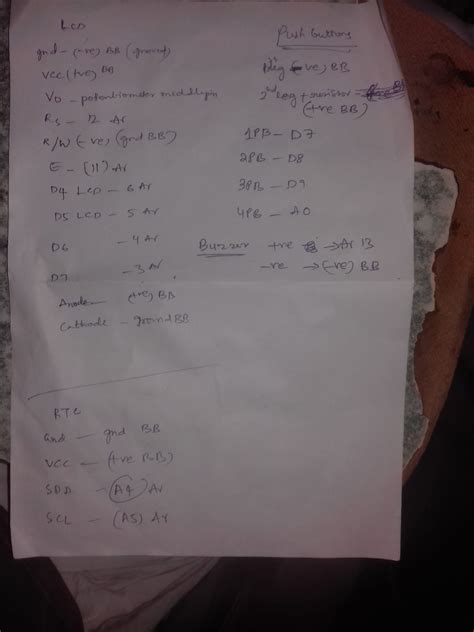 LCD
gnd - (-ve) BB (ground)
VCC (+ve) BB
V0 - potentiometer middlepin
Rs - 12 Ar
R/W (-ve) (gnd BB)
E - (11) Ar
D4 LCD - 6 Ar
D5 LCD - 5 Ar
D6 - 4 Ar
D7 - 3 Ar
Anode - (+ve) BB
Cathode - ground BB
Push buttons
1st leg (-ve) BB
2nd Leg + resistor -
(+ve BB)
1PB - D7
2PB - D8
3PB - D9
4PB - A0
Buzzer +ve → Ar 13
-ve → (-ve) BB
RTC
Gnd - gnd BB
VCC - (+ve BB)
SDA - (A4) Ar
SCL - (A5) Ar